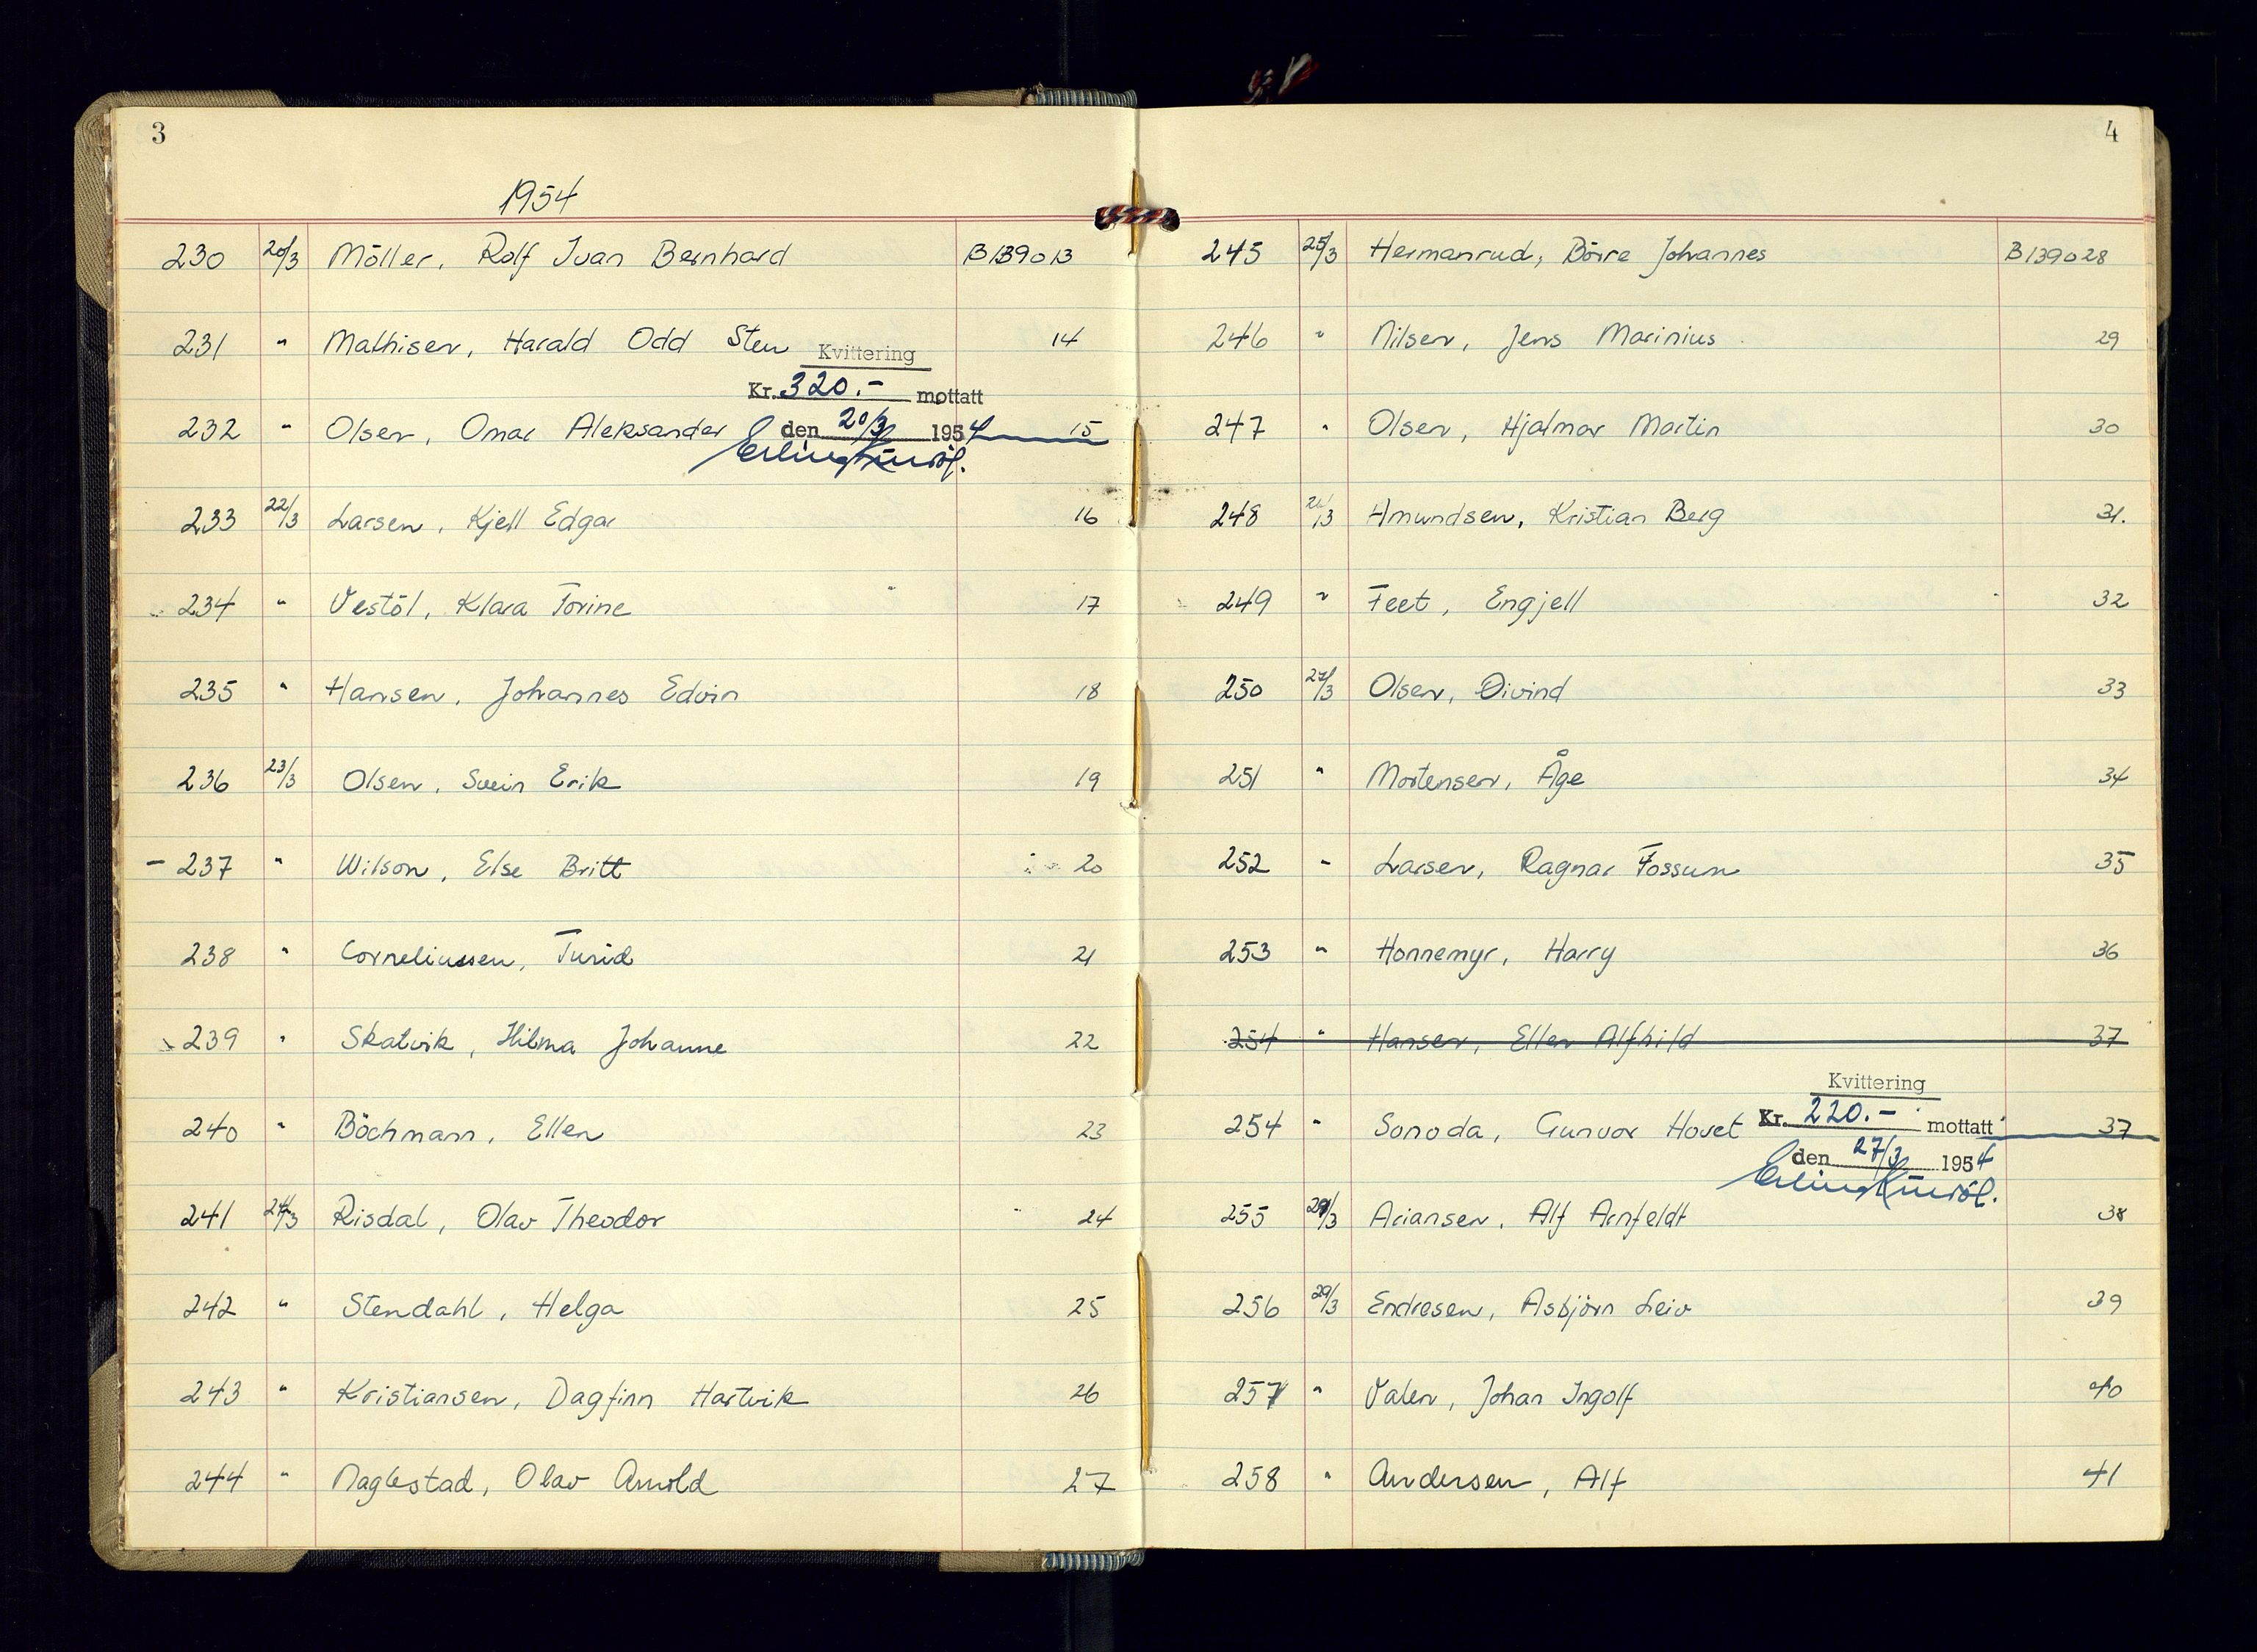 3
1954
230 20/3 Möller, Rolf Ivan Bernhard B139013
231 " Mathisen, Harald Odd Sten 14
Kvittering
Kr. 320.- mottatt
232 " Olsen, Omar Aleksander 15
den 20/3 1954
233 22/3 Larsen, Kjell Edgar 16
234 " Vestöl, Klara Torine 17
235 " Hansen, Johannes Edvin 18
236 23/3 Olsen, Svein Erik 19
- 237 " Wilson, Else Britt 20
238 " Corneliussen, Turid 21
239 " Skatvik, Hilma Johanne 22
240 " Böchmann, Ellen 23
241 24/3 Risdal, Olav Theodor 24
242 " Stendahl, Helga 25
243 " Kristiansen, Dagfinn Hartvik 26
244 " Naglestad, Olav Arnold 27
4
245 25/3 Hermanrud, Börre Johannes B139028
246 " Nilsen, Jens Marinius 29
247 " Olsen, Hjalmar Martin 30
248 /3 Amundsen, Kristian Berg 31.
249 " Feet, Engjell 32
250 27/3 Olsen, Øivind 33
251 " Mortensen, Åge 34
252 " Larsen, Ragnar Fossum 35
253 " Honnemyr, Harry 36
254 " Hansen, Ellen Alfhild 37
Kvittering
254 " Sonoda, Gunvor Hovet 37
Kr. 220.- mottatt
den 27/3 1954
255 /3 Ariansen, Alf Arnfeldt 38
256 29/3 Endresen, Asbjörn Leiv 39
257 " Valen, Johan Ingolf 40
258 " Andersen, Alf 41